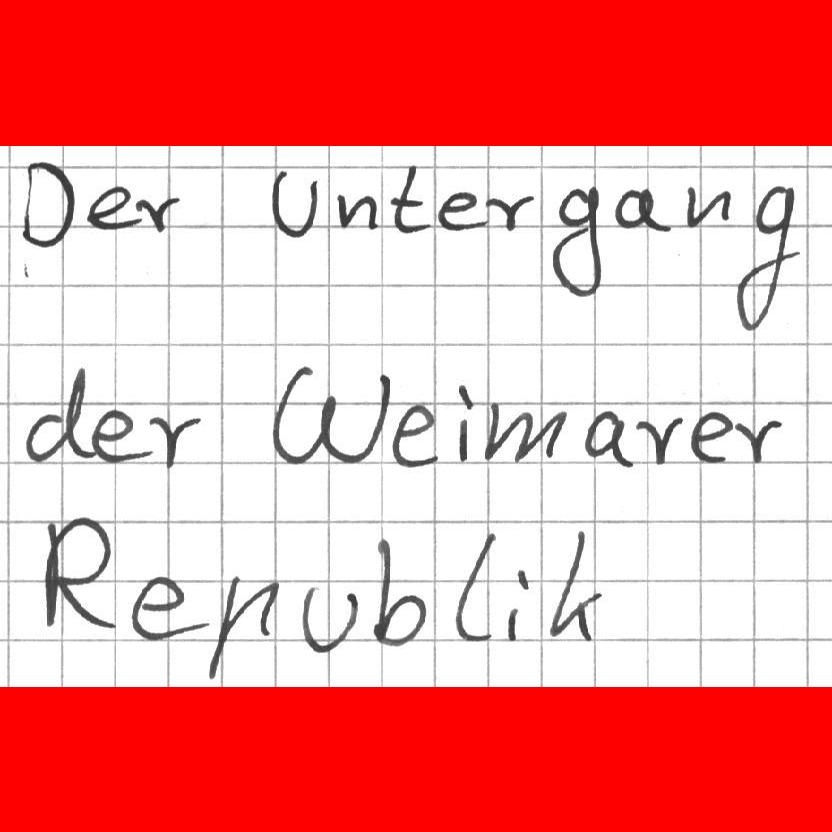 Der Untergang
der Weimarer
Republik